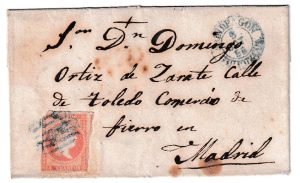 Sor. Dn. Domingo
Ortiz de Zarate Calle
de Toledo Comercio de
fierro en
Madrid
4 CUARTOS